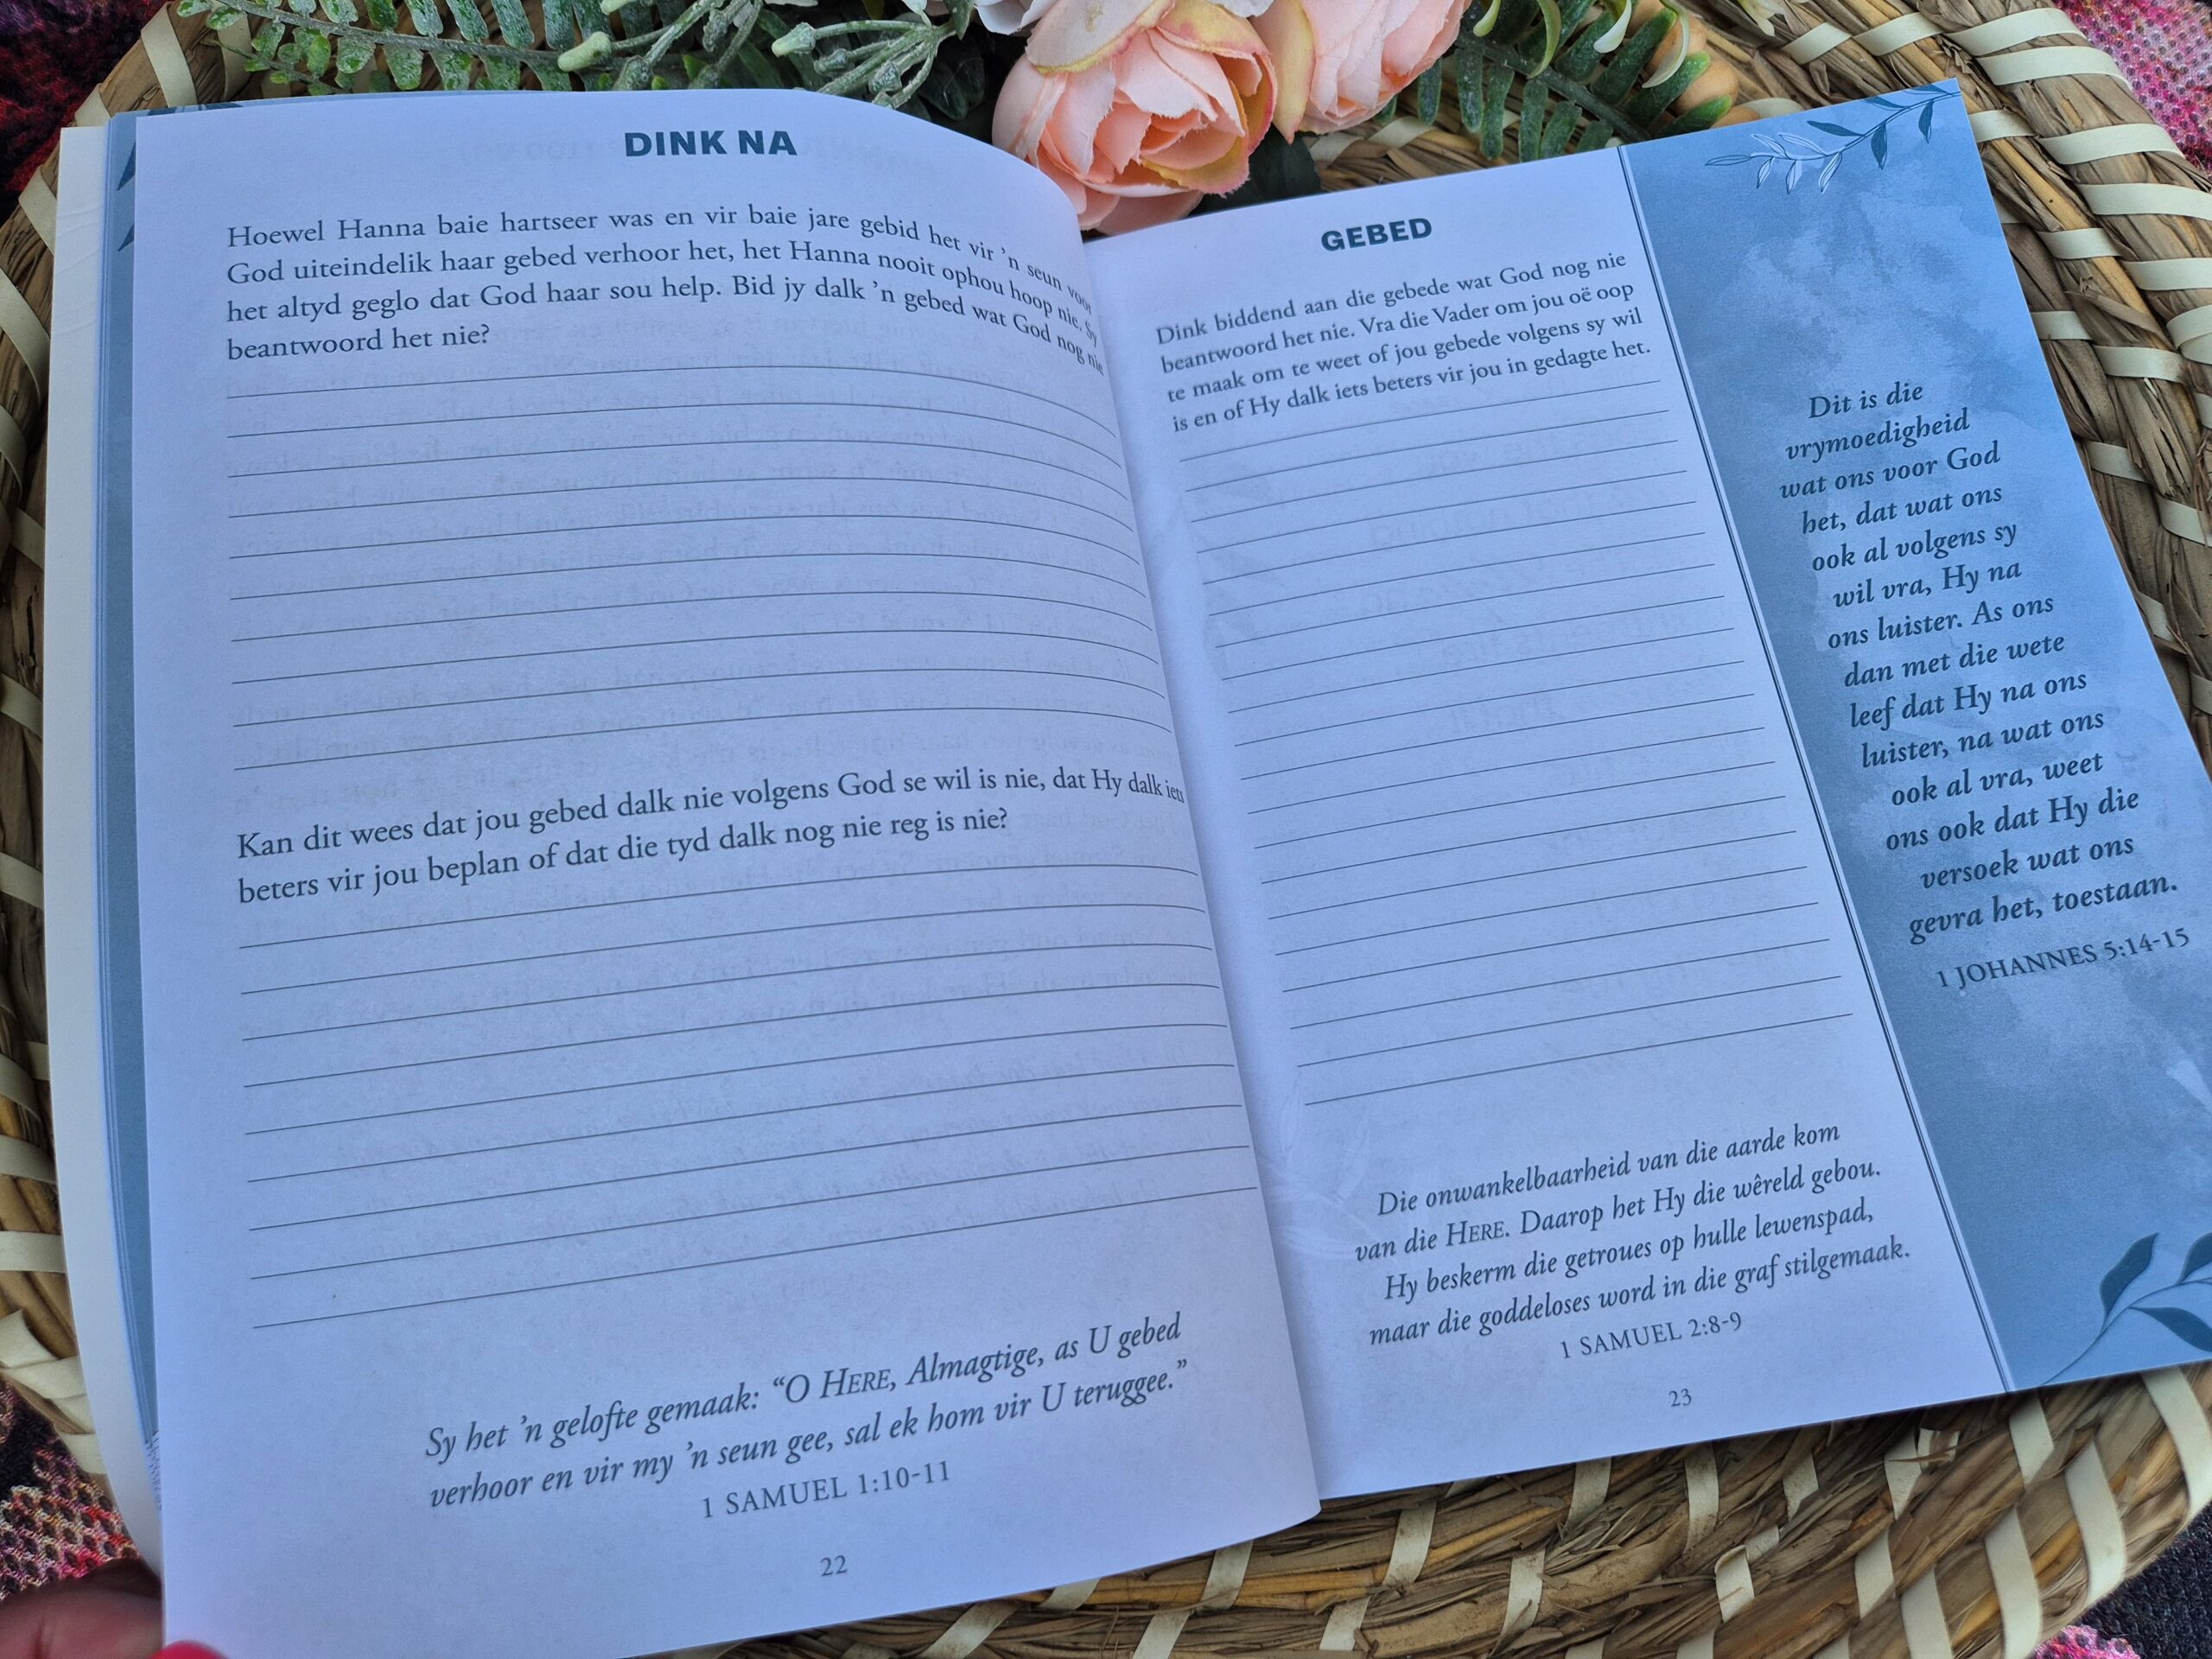 DINK NA
Hoewel Hanna baie hartseer was en vir baie jare gebid het vir ’n seun voor
God uiteindelik haar gebed verhoor het, het Hanna nooit ophou hoop nie. Sy
het altyd geglo dat God haar sou help. Bid jy dalk ’n gebed wat God nog nie
beantwoord het nie?
Kan dit wees dat jou gebed dalk nie volgens God se wil is nie, dat Hy dalk iets
beters vir jou beplan of dat die tyd dalk nog nie reg is nie?
Sy het ’n gelofte gemaak: “O HERE, Almagtige, as U gebed
verhoor en vir my ’n seun gee, sal ek hom vir U teruggee.”
1 SAMUEL 1:10-11
22
GEBED
Dink biddend aan die gebede wat God nog nie
beantwoord het nie. Vra die Vader om jou oë oop
te maak om te weet of jou gebede volgens sy wil
is en of Hy dalk iets beters vir jou in gedagte het.
Die onwankelbaarheid van die aarde kom
van die HERE. Daarop het Hy die wêreld gebou.
Hy beskerm die getroues op hulle lewenspad,
maar die goddeloses word in die graf stilgemaak.
1 SAMUEL 2:8-9
23
Dit is die
vrymoedigheid
wat ons voor God
het, dat wat ons
ook al volgens sy
wil vra, Hy na
ons luister. As ons
dan met die wete
leef dat Hy na ons
luister, na wat ons
ook al vra, weet
ons ook dat Hy die
versoek wat ons
gevra het, toestaan.
1 JOHANNES 5:14-15